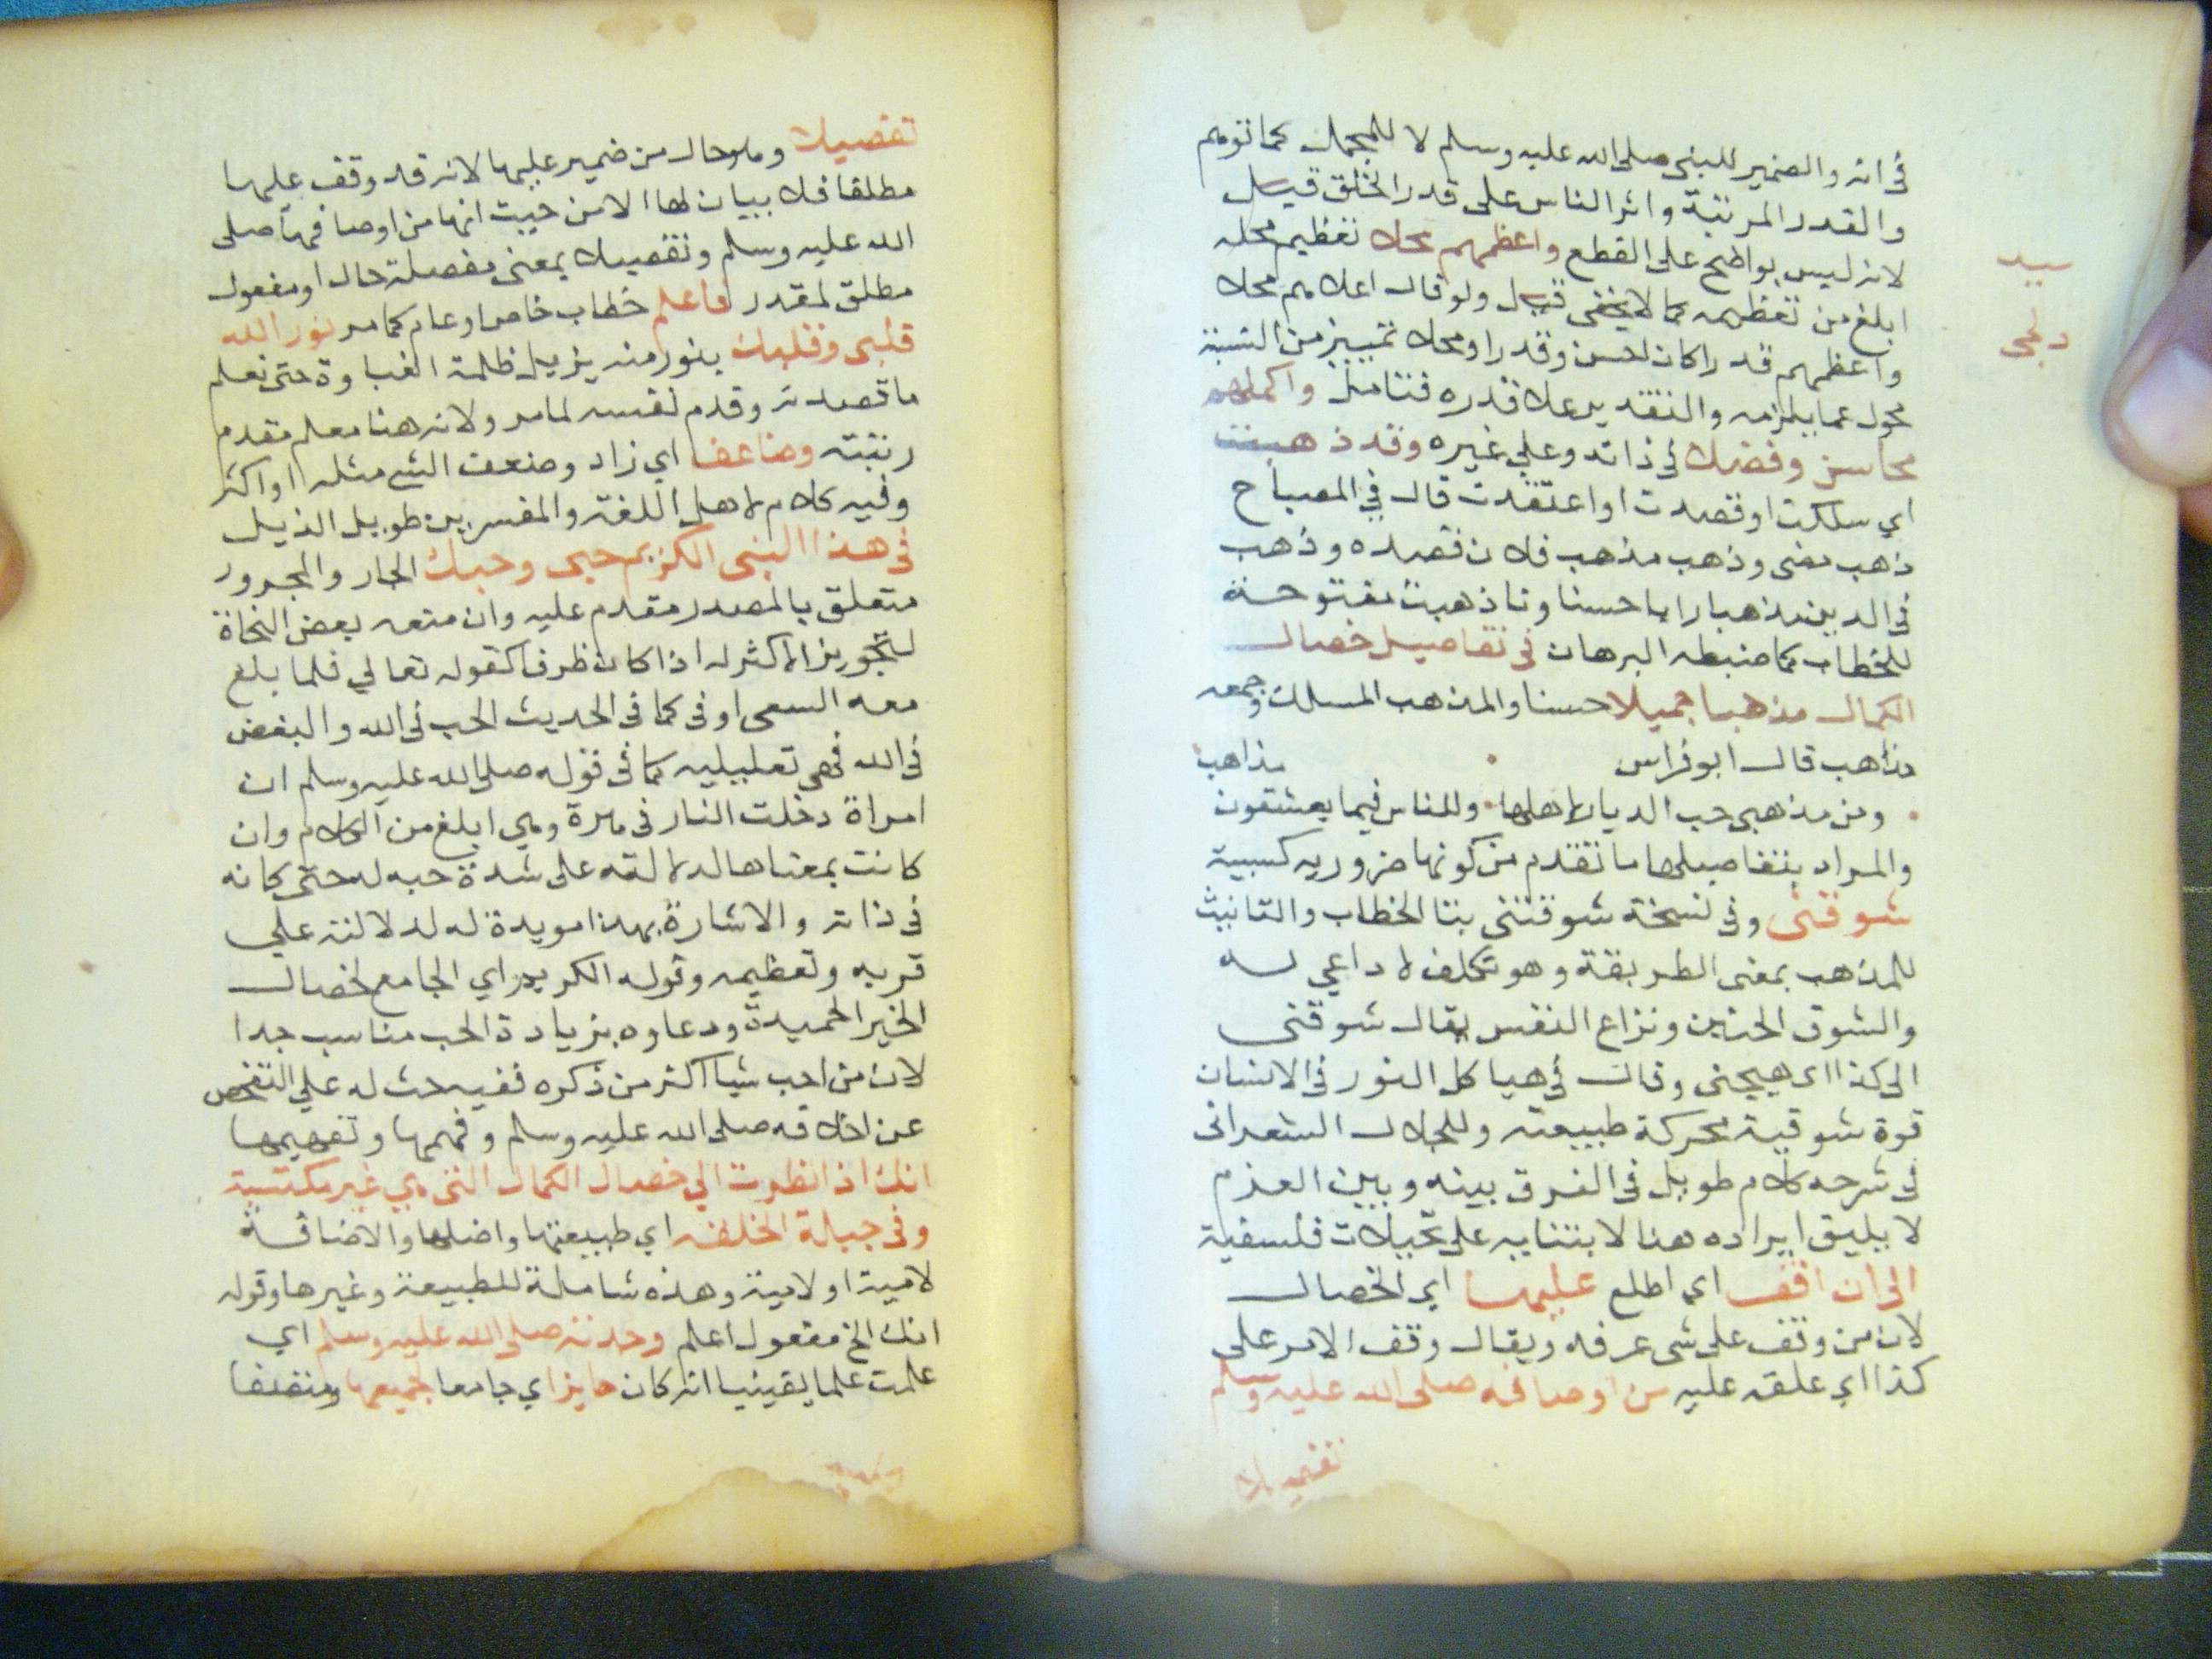 في انه والضمير للنبي صلى الله عليه وسلم لا للمجمل كما توهم
والقدر المرتبة واثر الناس على قدر الخلق قيل
لانه ليس بواضح على القطع واعظمهم محلا تعظيم محله
سيد
ابلغ من تعظيمه كما لا يخفى قيل ولو قال اعلاهم محلا
دلجى
واعظمهم قدرا كان احسن وقدرا ومحلا تمييز من النسبة
محول عما يلزمه والتقدير علا قدره فتامل واكملهم
محاسن وفضلا في ذاته وعلى غيره وقد ذهبت
اي سلكت او قصدت او اعتقدت قال في المصباح
ذهب مضى وذهب مذهب فلان قصده وذهب
في الدين مذهبا رايا حسنا وتا ذهبت مفتوحة
للخطاب كما ضبطه البرهان في تفاصيل خصال
الكمال مذهبا جميلا حسنا والمذهب المسلك وجمعه
مذاهب قال ابو فراس مذاهب
ومن مذهبي حب الديار لاهلها وللناس فيما يعشقون
والمراد بتفاصيلها ما تقدم من كونها ضروريه كسبية
شوقني وفي نسخة شوقتني بتا الخطاب والتانيث
للمذهب بمعنى الطريقة وهو تكلف لا داعي له
والشوق الحنين ونزاع النفس يقال شوقني
الى كذا اى هيجنى وقال في هياكل النور في الانسان
قوة شوقية محركة طبيعته وللجلال الشعرانى
في شرحه كلام طويل في الفرق بينه وبين العزم
لا يليق ايراده هنا لابتنايه على تخيلات فلسفية
الى ان اقف اي اطلع عليها اي الخصال
لان من وقف على شى عرفه ويقال وقف الامر على
كذا اي علقه عليه من اوصافه صلى الله عليه وسلم
تفصيلا
تفصيلا وهو حال من ضمير عليها لانه قد وقف عليها
مطلقا فلا بيان لها الا من حيث انها من اوصافها صلى
الله عليه وسلم وتفصيلا بمعنى مفصلة حال او مفعول
مطلق لمقدر فاعلم خطاب خاص او عام كما مر نور الله
قلبى وقلبك بنور منه يزيل ظلمة الغباوة حتى تعلم
ما قصدته وقدم نفسه لما مر ولانه هنا معلم مقدم
رتبته وضاعف اي زاد وضعف الشي مثله او اكثر
وفيه كلام لاهل اللغة والمفسرين طويل الذيل
في هذا النبى الكريم حبى وحبك الجار والمجرور
متعلق بالمصدر مقدم عليه وان منعه بعض النحاة
لتجويز الاكثر له اذا كان ظرفا كقوله تعالي فلما بلغ
معه السعى او في كما في الحديث الحب في الله والبغض
في الله فهى تعليليه كما في قوله صلى الله عليه وسلم ان
امراة دخلت النار في هرة وهي ابلغ من اللام وان
كانت بمعناها لدلالته على شدة حبه له حتى كانه
في ذاته والاشارة بهذا مويدة له لدلالته علي
قربه وتعظيمه وقوله الكريم اي الجامع لخصال
الخير الحميدة ودعاوه بزيادة الحب مناسب جدا
لان من احب شيا اكثر من ذكره ففيه حث له علي التفحص
عن اخلاقه صلى الله عليه وسلم وفهمها وتفهيمها
انك اذا نظرت الي خصال الكمال التى هي غير مكتسبة
وفى جبلة الخلقة اي طبيعتها واصلها والاضافة
لامية او لامية وهذه شاملة للطبيعة وغيرها وقوله
انك الخ مفعول اعلم وجدته صلى الله عليه وسلم اي
علمت علما يقينيا انه كان حايزا اي جامعا لجميعها ومتصفا